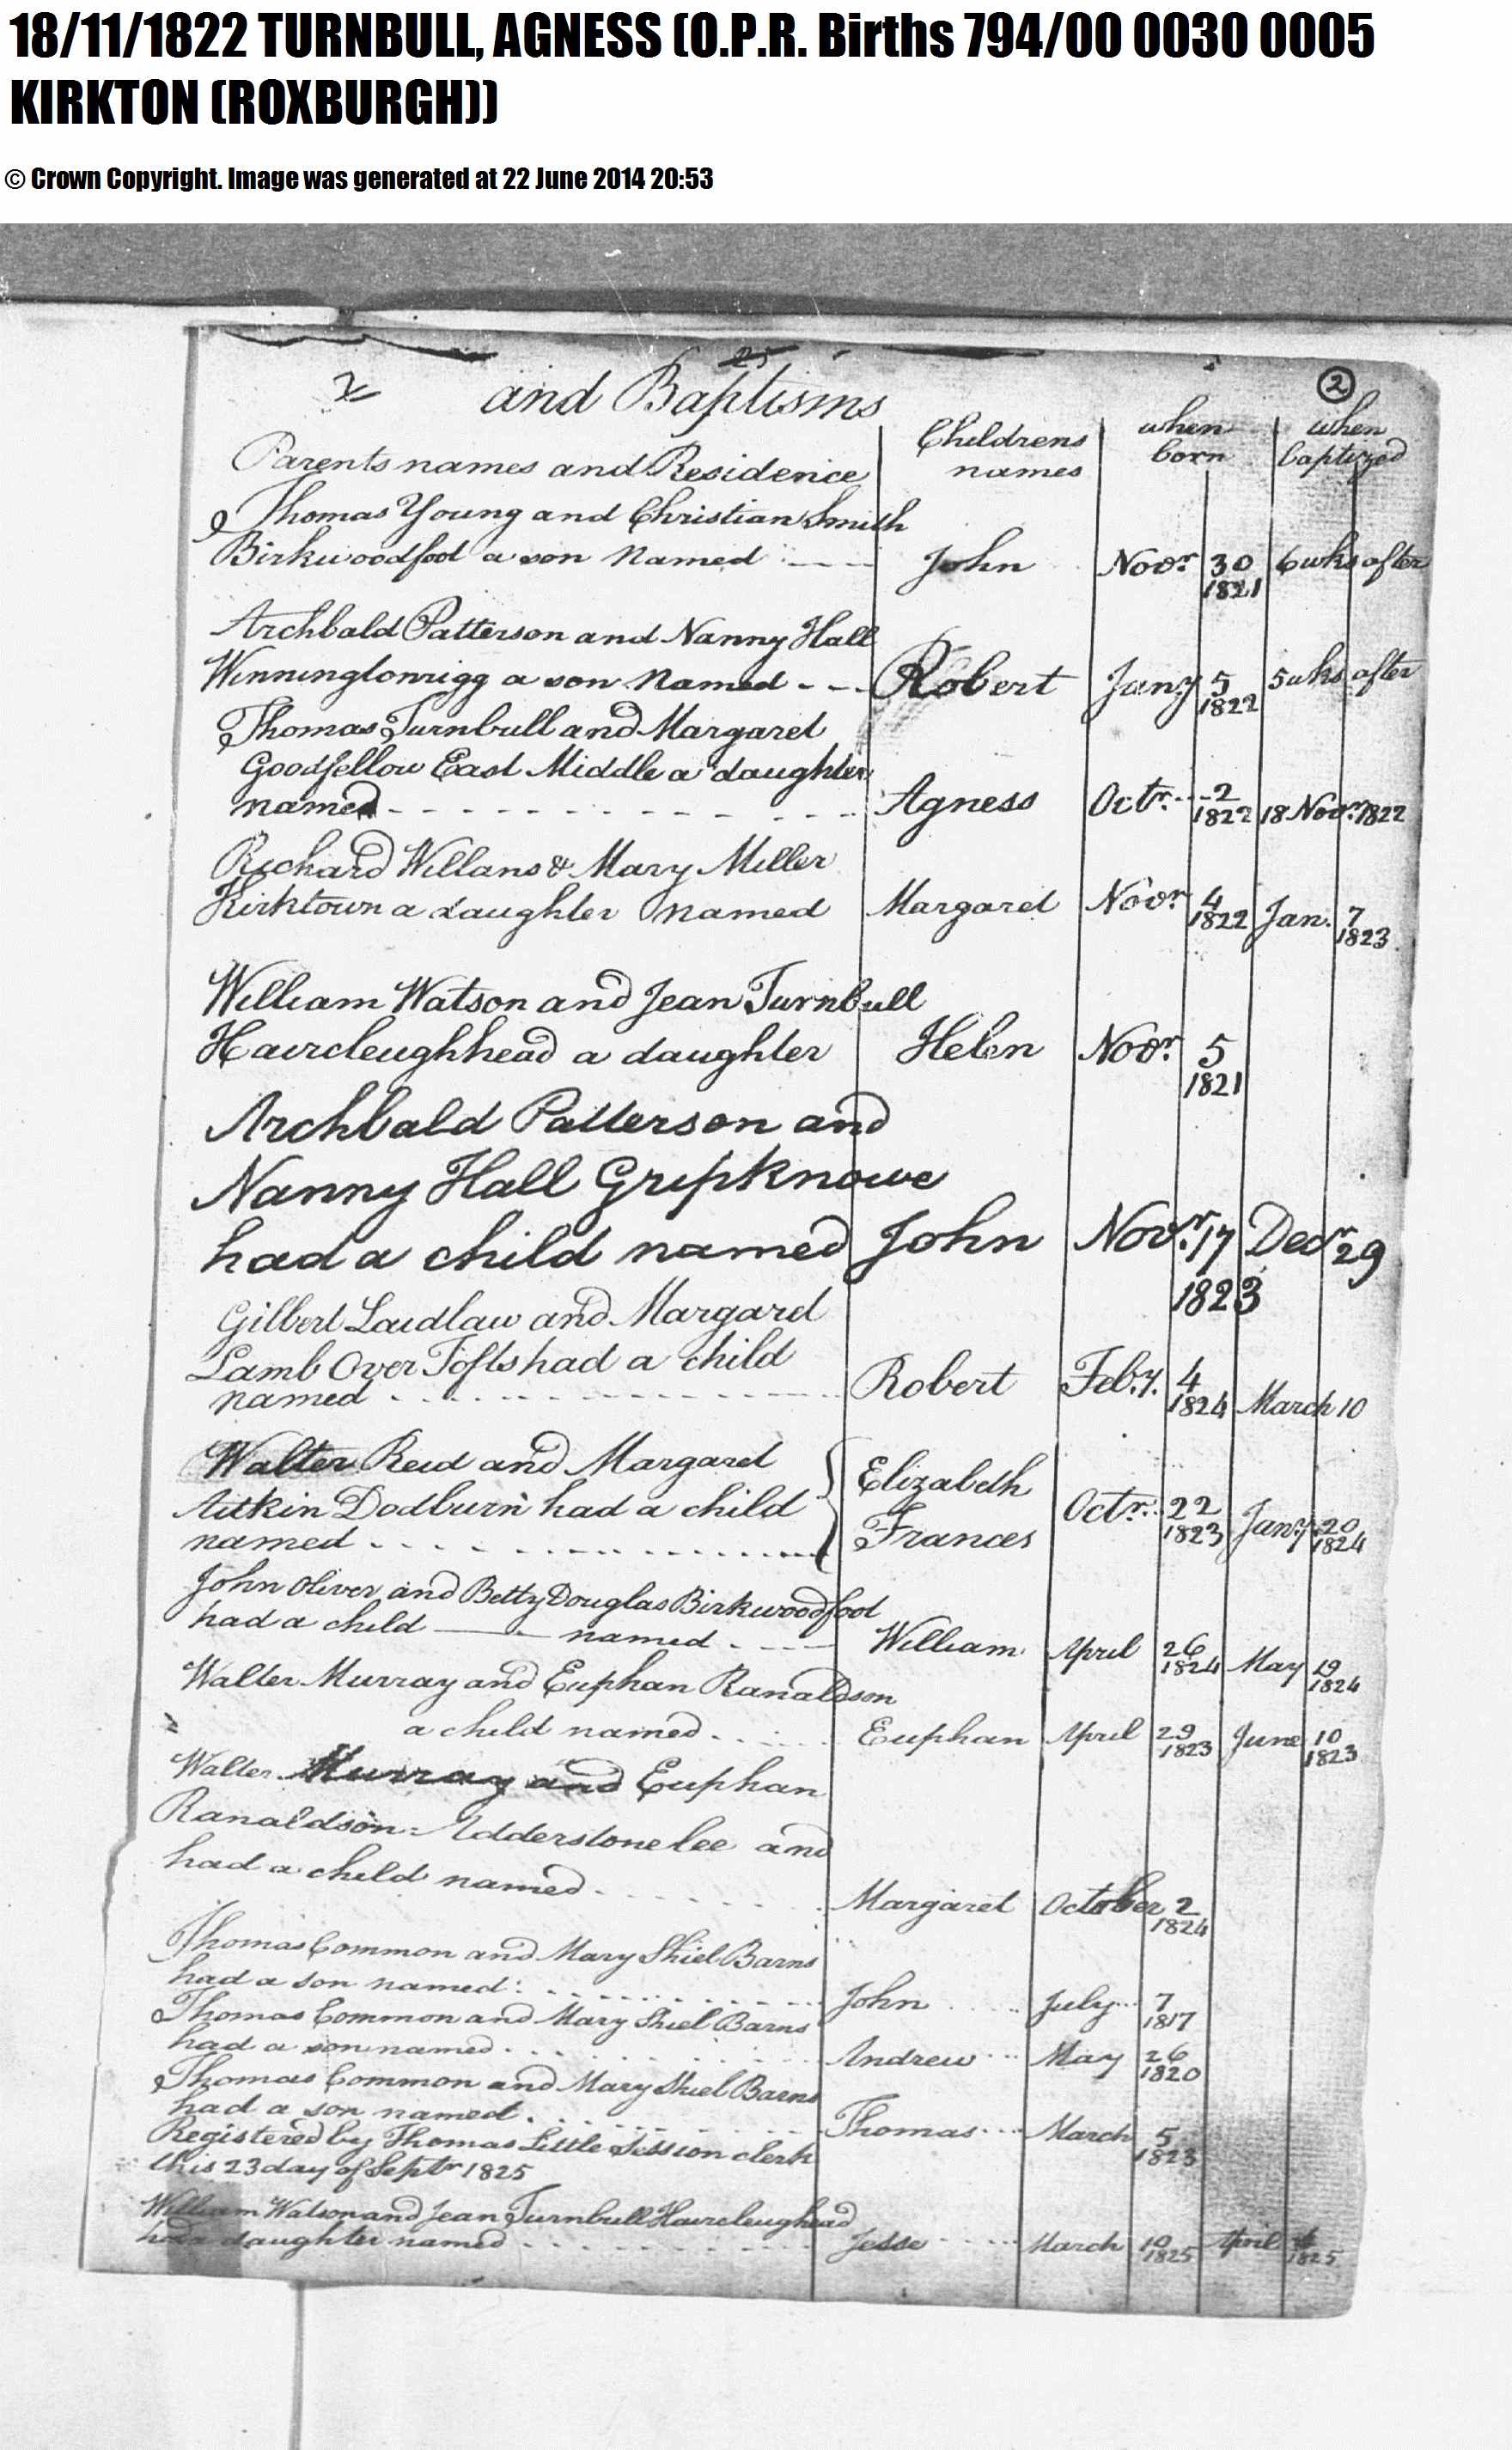 18/11/1822 TURNBULL, AGNESS (O.P.R. Births 794/00 0030 0005
KIRKTON (ROXBURGH))
© Crown Copyright. Image was generated at 22 June 2014 20:53
25
2 and Baptisms 2
Parents names and Residence Childrens names when born when baptized
Thomas Young and Christian Smith
Birkwoodfoot a son Named John Novr 30 1821 6 wks after
Archbald Patterson and Nanny Hall
Winningtonrigg a son Named - - - Robert Jany 5 1822 5 wks after
Thomas Turnbull and Margaret
Goodfellow East Middle a daughter
named - - - Agness Octr. 2 1822 18 Novr. 1822
Richard Willans & Mary Miller
Kirktown a daughter named Margaret Novr 4 1822 Jan. 7 1823
William Watson and Jean Turnbull
Haircleughhead a daughter Helen Novr. 5 1821
Archbald Patterson and
Nanny Hall Gripknowe
had a child named John Novr. 17 1823 Decr 29
Gilbert Laidlaw and Margaret
Lamb Over Tofts had a child
named - - - Robert Feb.y. 4 1824 March 10
Walter Reid and Margaret
Aitkin Dodburn had a child
named - - - Elizabeth Frances Octr. 22 1823 Jany 20 1824
John Oliver and Betty Douglas Birkwoodfoot
had a child named - - - William April 26 1824 May 19 1824
Walter Murray and Euphan Ranaldson
a child named - - - Euphan April 29 1823 June 10 1823
Walter Murray and Euphan
Ranaldson Adderstonelee and
had a child named - - - Margaret October 2 1824
Thomas Common and Mary Shiel Barns
had a son named: - - - John July 7 1817
Thomas Common and Mary Shiel Barns
had a son named - - - Andrew May 26 1820
Thomas Common and Mary Shiel Barns
had a son named - - - Thomas March 5 1823
Registered by Thomas Little Session clerk
this 23 day of Septr 1825
William Watson and Jean Turnbull Haircleughead
had a daughter named - - - Jesse March 10 1825 April 1825